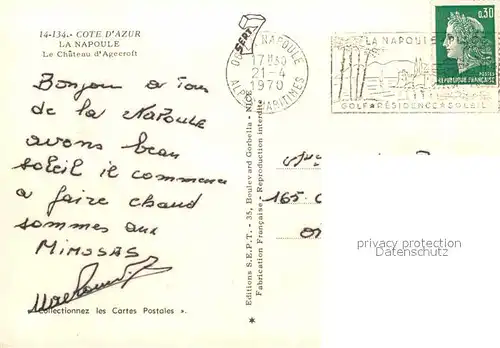 14-134.- COTE D'AZUR
LA NAPOULE
Le Château d'Agecroft
Bonjour a Tous
de la Napoule
avons beau
soleil il commence
a faire chaud
sommes aux
MIMOSAS
« Collectionnez les Cartes Postales ».
SEPT
Editions S.E.P.T. - 35, Boulevard Gorbella - NICE
Fabrication Française - Reproduction interdite
*
NAPOULE
17H30
21-4
1970
ALPES MARITIMES
LA NAPOULE
GOLF RÉSIDENCE SOLEIL
0,30
POSTES
REPUBLIQUE FRANÇAISE
165
privacy protection
VINTAGEMADE.com